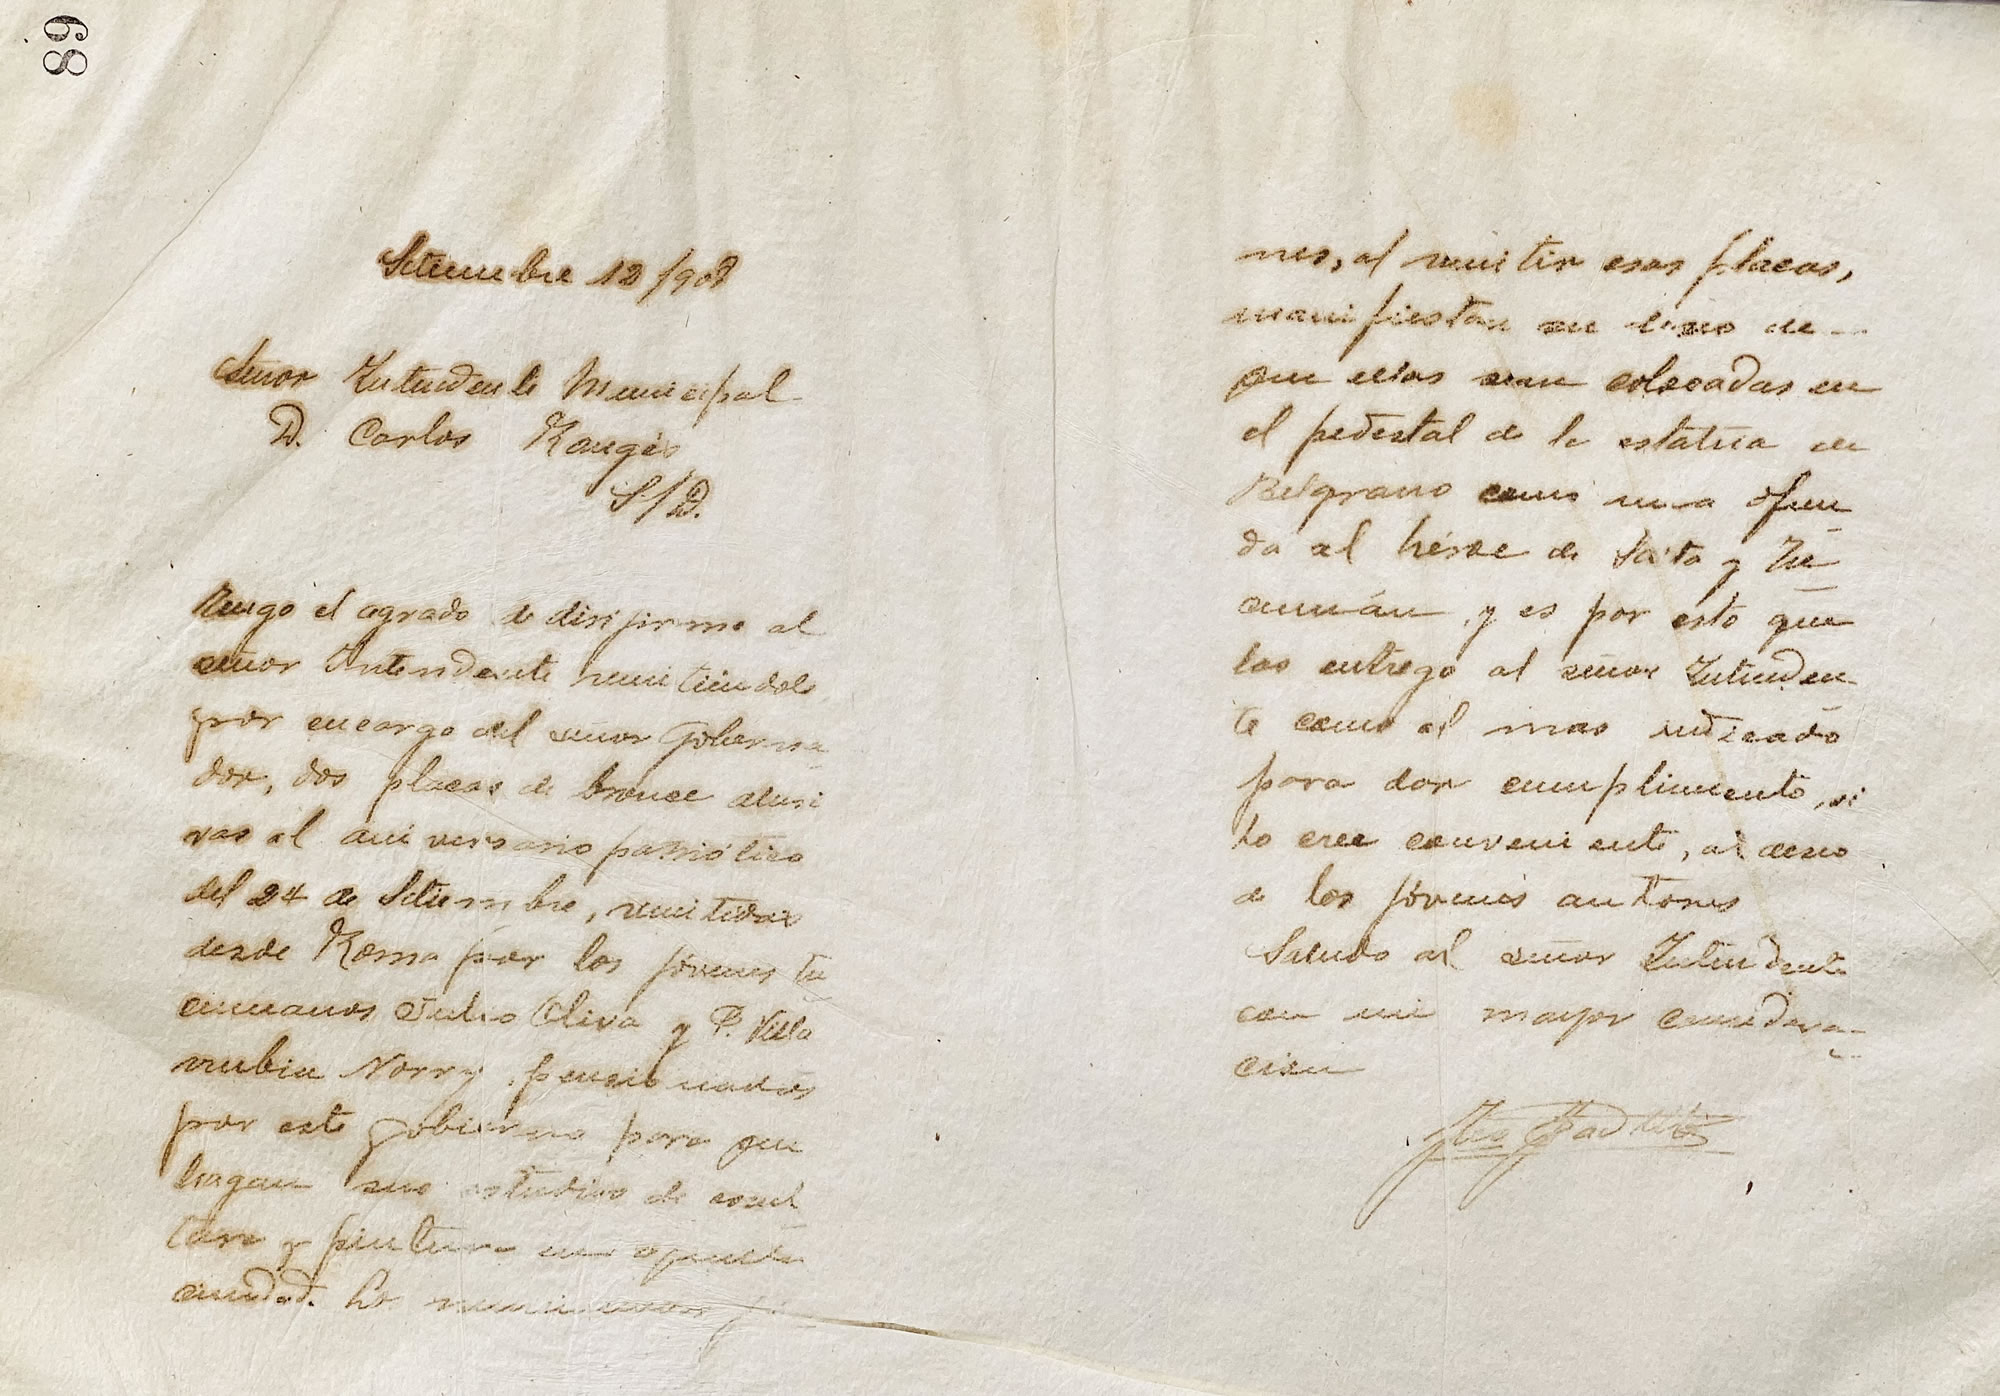 68
Setiembre 12/908
Señor Intendente Municipal
D. Carlos Rougés
S/D.
Tengo el agrado de dirijirme al
señor Intendente remitiendole
por encargo del señor Goberna
dor, dos placas de bronce alusi
vas al aniversario patriótico
del 24 de Setiembre, remitidas
desde Roma por los jóvenes tu
cumanos Julio Oliva y P. Villa
rubia Norry, pensionados
por este gobierno para que
hagan sus estudios de escul
tura y pintura en aquella
ciudad. Los
nes, al remitir esas placas,
manifiestan su deseo de
que ellas sean colocadas en
el pedestal de la estátua de
Belgrano como una ofren
da al héroe de Salta y Tu
cumán y es por esto que
las entrego al señor Intenden
te como el mas indicado
para dar cumplimento, si
lo cree conveniente, al deseo
de los jóvenes autores
Saludo al señor Intendente
con mi mayor considera
cion
Padilla